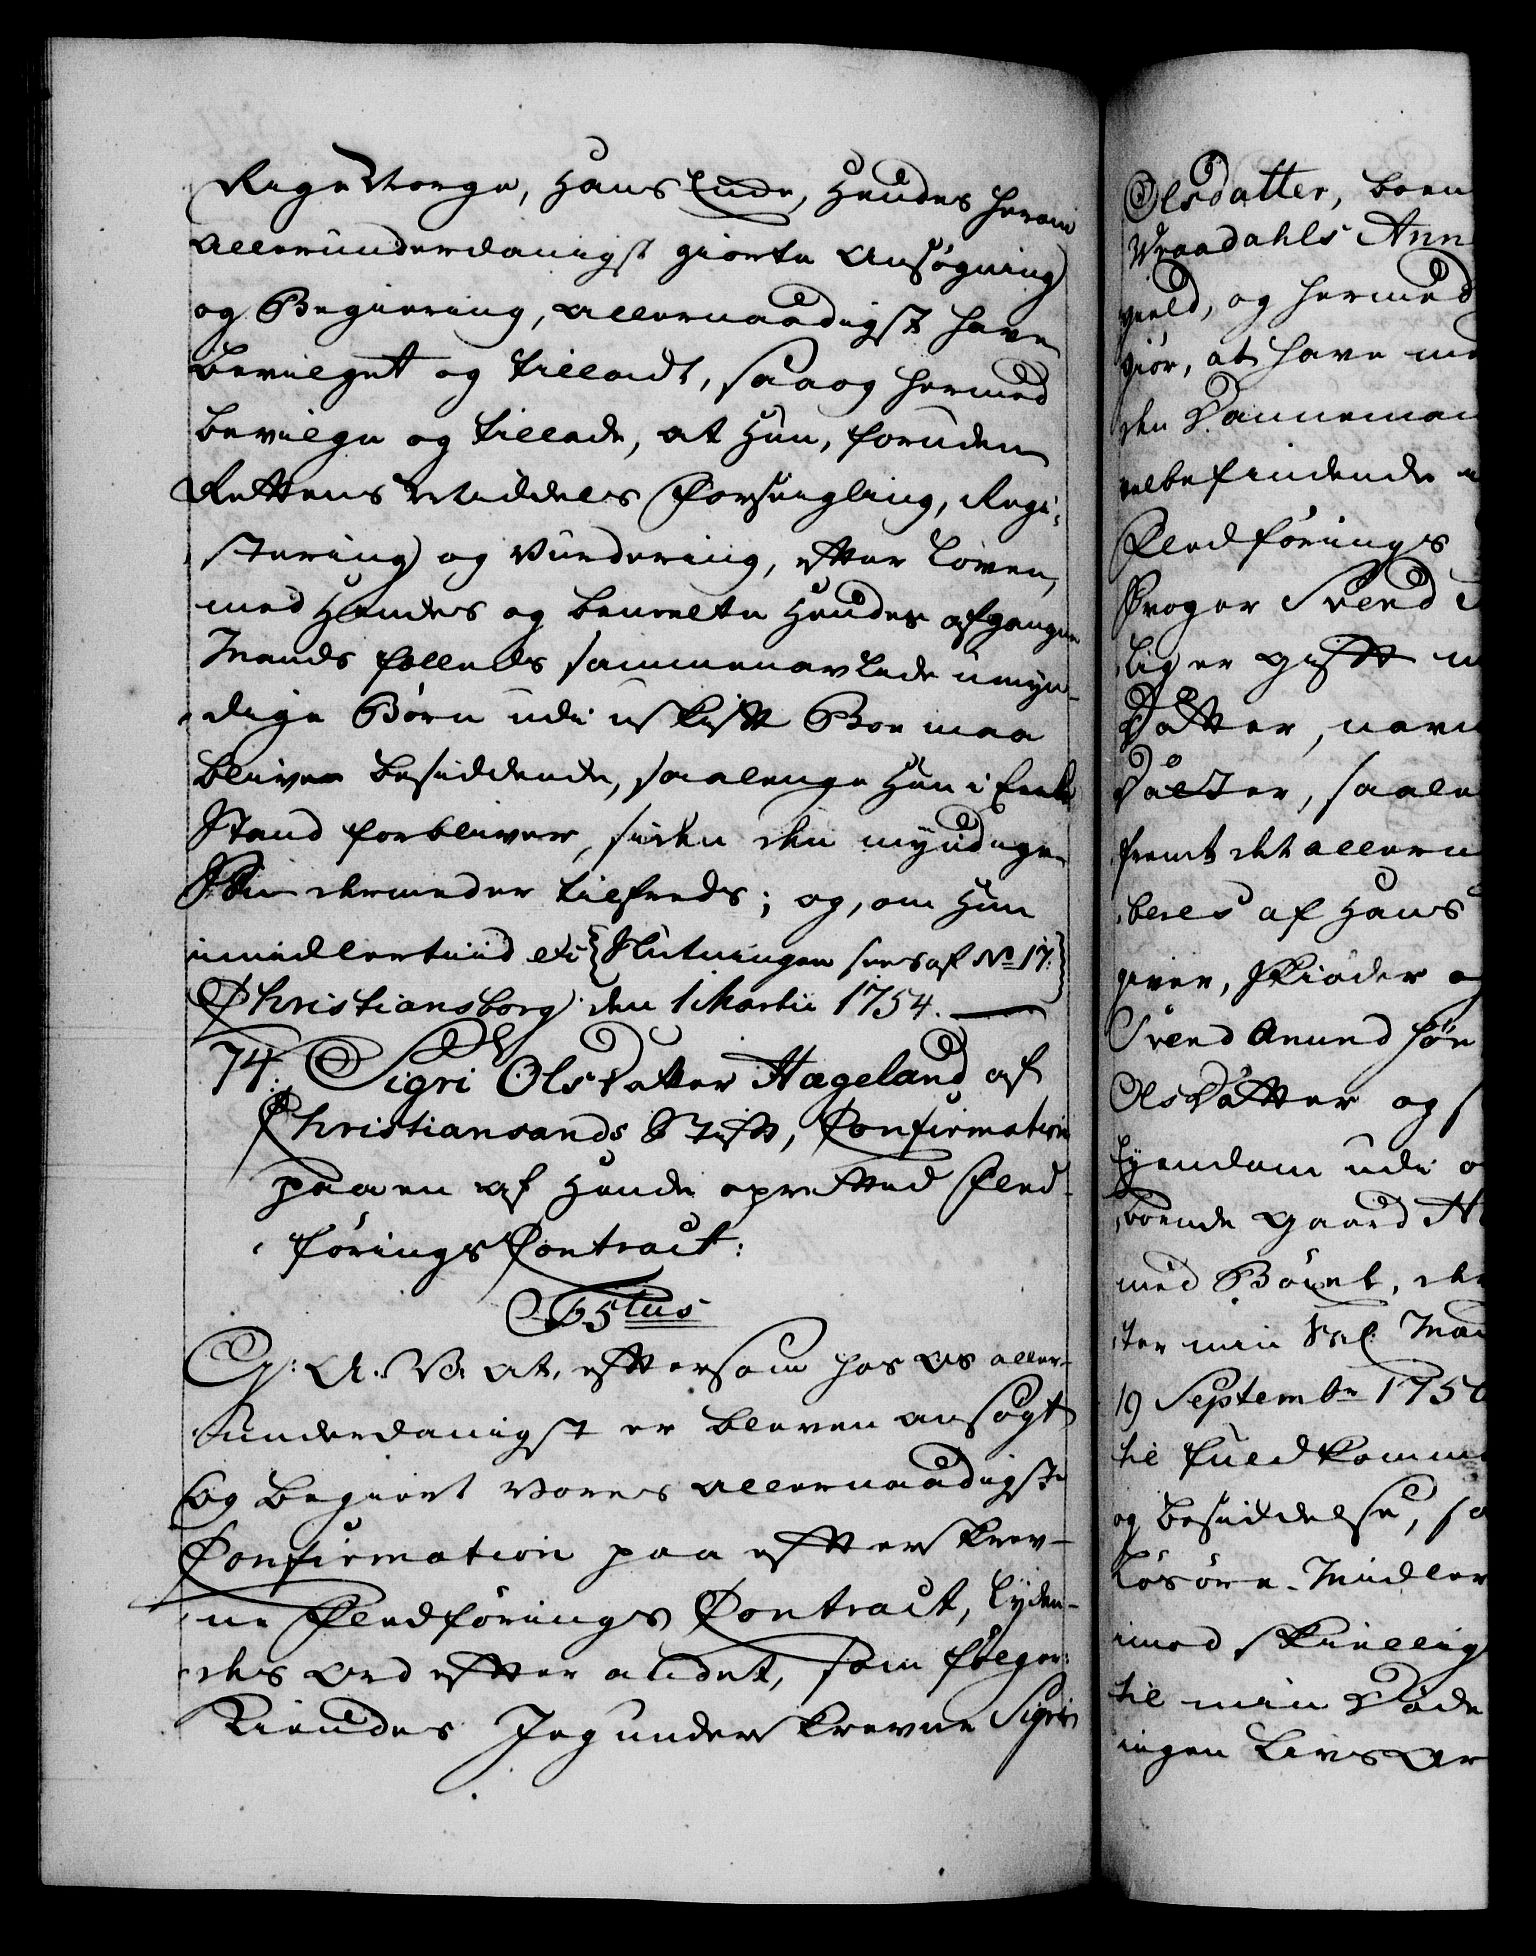 Rige Norge, Hans Ende, Hendes herom
allerunderdanigst giorte Ansøgning
og Begiering, allernaadigst have
bevilget og tilladt, saa og hermed
bevilge og tillade, at Hun, foruden
Rettens Middels Forseigling, Regi-
stering og Vurdering, efter Loven,
med Hendes og bemelte Hendes afgangne
Mands fælleds sammenavlede umyn-
dige Børn udi uskift Boe maa
blive besiddende, saalenge Hun i Enke
Stand forbliver, siden den myndige
Søn dermed er tilfreds; og, om Hun
imidlertiid etc {Slutningen sees af No 17.}
Christiansborg den 1 Martii 1754.
74. Sigri Olsdatter Hægeland af
Christiansands Stift, Confirmation
paa en af Hende oprettet Fled-
førings Contract:
F5tus
G: A. V. at, eftersom hos os aller-
underdanigst er bleven ansøgt
og begiert Vores allernaadigste
Confirmation paa efterskrev-
ne Fledførings Contract, lyden-
des Ord efter andet, som følger:
Kiendes Jeg underskrevne Sigri
Olsdatter, boen
Vraadahls Ann
gield, og hermed
giør, at have
den Dannemand
velbefindende
Fledførings
Broger Svend
lig er gift
Datter, navn
Datter, saale
fremt det allern
beles af Hans
giver, skiøder og
Svend Anund Søn
Olsdatter og
Eyendom udi
boende Gaard
med Bøxel,
ter min Sal. Man
19 Septembr 175
til fuldkomm
og besiddelse, sa
Løsøre-Midler
imod skiellig
til min Døde
ingen Livs Ar